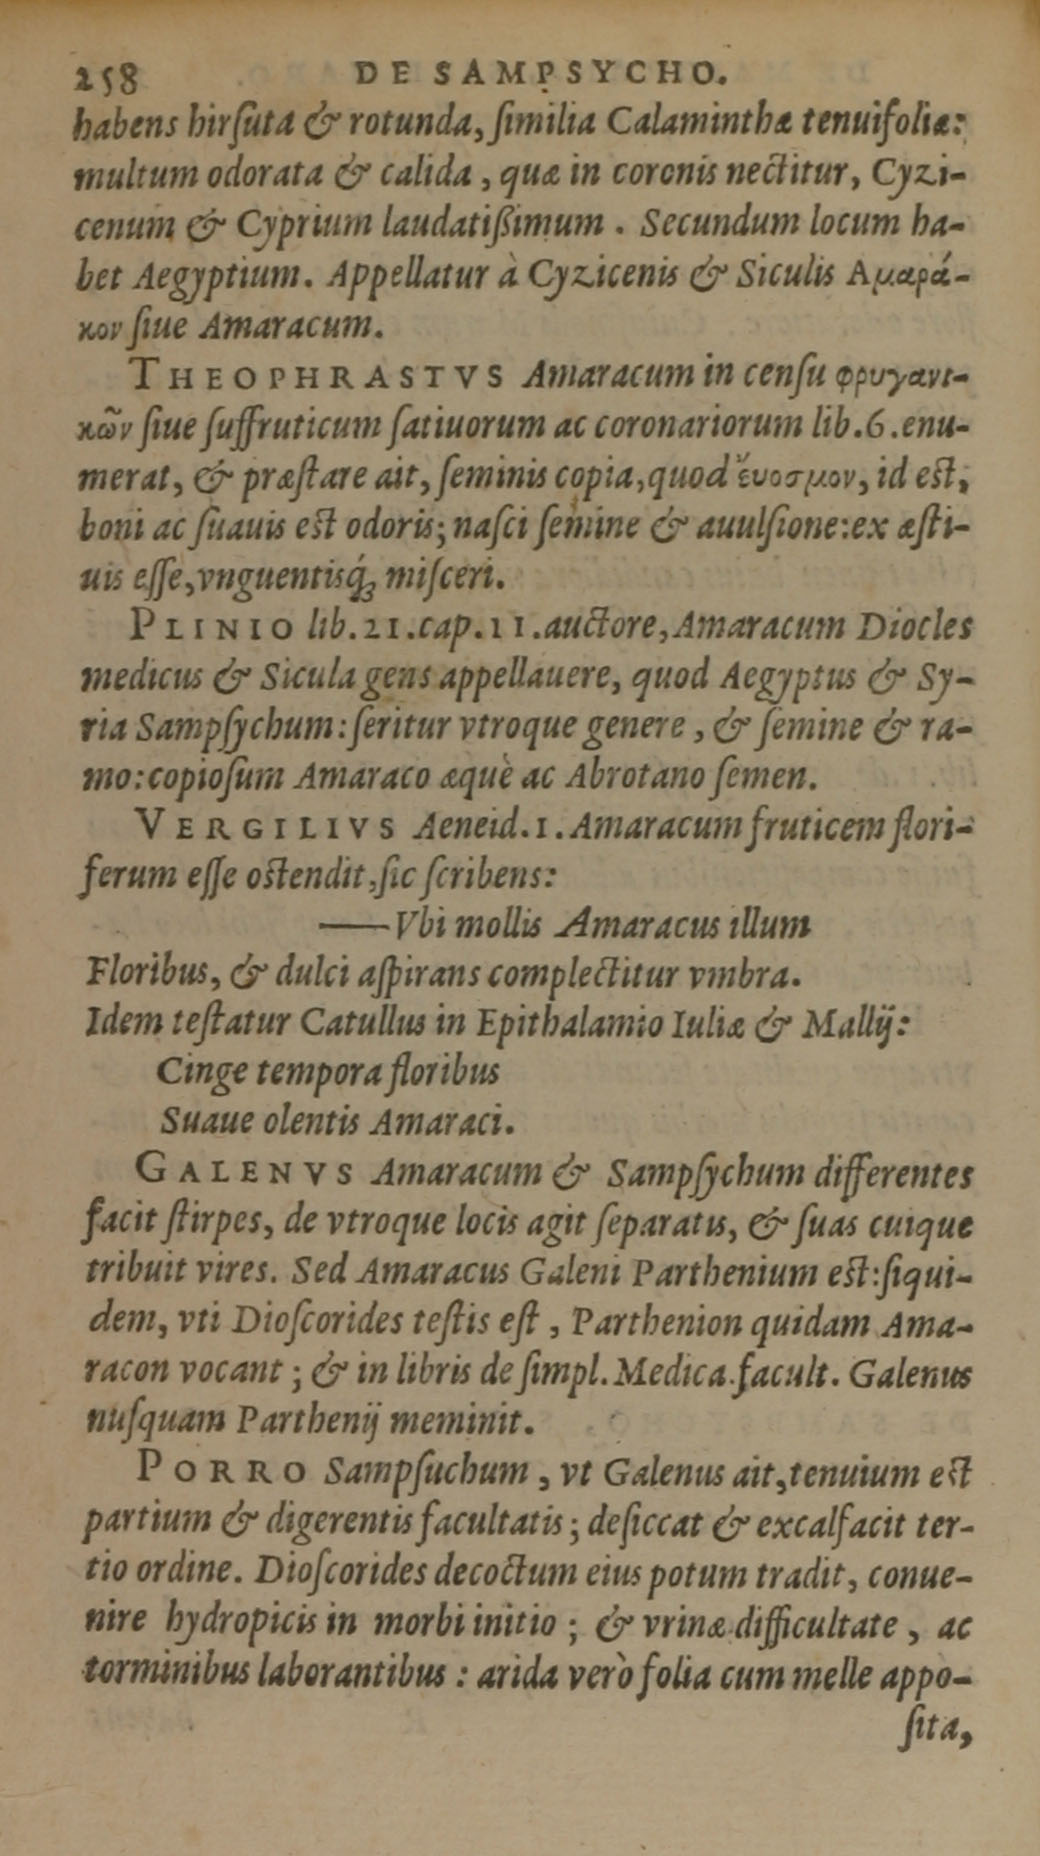 258 DE SAMPSYCHO.
habens hirſuta & rotunda, ſimilia Calaminthæ tenuifoliæ:
multum odorata & calida, quæ in coronis nectitur, Cyzi-
cenum & Cyprium laudatißimum. Secundum locum ha-
bet Aegyptium. Appellatur à Cyzicenis & Siculis Αμαρά-
κον ſiue Amaracum.
THEOPHRASTVS Amaracum in cenſu φρυγανι-
κῶν ſiue ſuffruticum ſatiuorum ac coronariorum lib.6.enu-
merat, & præſtare ait, ſeminis copia, quod ἔυοσμον, id est,
boni ac ſuauis est odoris; naſci ſemine & auulſione: ex æſti-
uis eſſe, vnguentisq́ꝫ miſceri.
PLINIO lib.21.cap.11.auctore, Amaracum Diocles
medicus & Sicula gens appellauere, quod Aegyptus & Sy-
ria Sampſychum: ſeritur vtroque genere, & ſemine & ra-
mo: copioſum Amaraco æquè ac Abrotano ſemen.
VERGILIVS Aeneid.1. Amaracum fruticem flori-
ferum eſſe ostendit, ſic ſcribens:
—Vbi mollis Amaracus illum
Floribus, & dulci aſpirans complectitur vmbra.
Idem teſtatur Catullus in Epithalamio Iuliæ & Mallij:
Cinge tempora floribus
Suaue olentis Amaraci.
GALENVS Amaracum & Sampſychum differentes
facit ſtirpes, de vtroque locis agit ſeparatis, & ſuas cuique
tribuit vires. Sed Amaracus Galeni Parthenium est: ſiqui-
dem, vti Dioſcorides teſtis eſt, Parthenion quidam Ama-
racon vocant; & in libris de ſimpl. Medica. facult. Galenus
nuſquam Parthenij meminit.
PORRO Sampſuchum, vt Galenus ait, tenuium est
partium & digerentis facultatis; deſiccat & excalfacit ter-
tio ordine. Dioſcorides decoctum eius potum tradit, conue-
nire hydropicis in morbi initio; & vrinæ difficultate, ac
torminibus laborantibus: arida verò folia cum melle appo-
ſita,